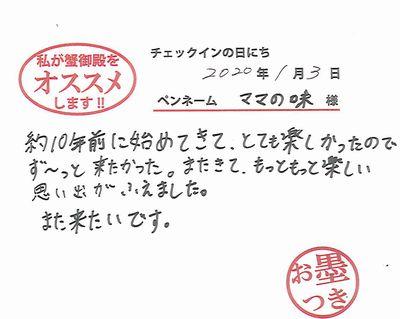 私が蟹御殿を
オススメ
します!!
チェックインの日にち
2020年1月3日
ペンネーム ママの味 様
約10年前に始めてきて、とても楽しかったので
ず〜っと来たかった。またきて、もっともっと楽しい
思い出がふえました。
また来たいです。
お墨
つき